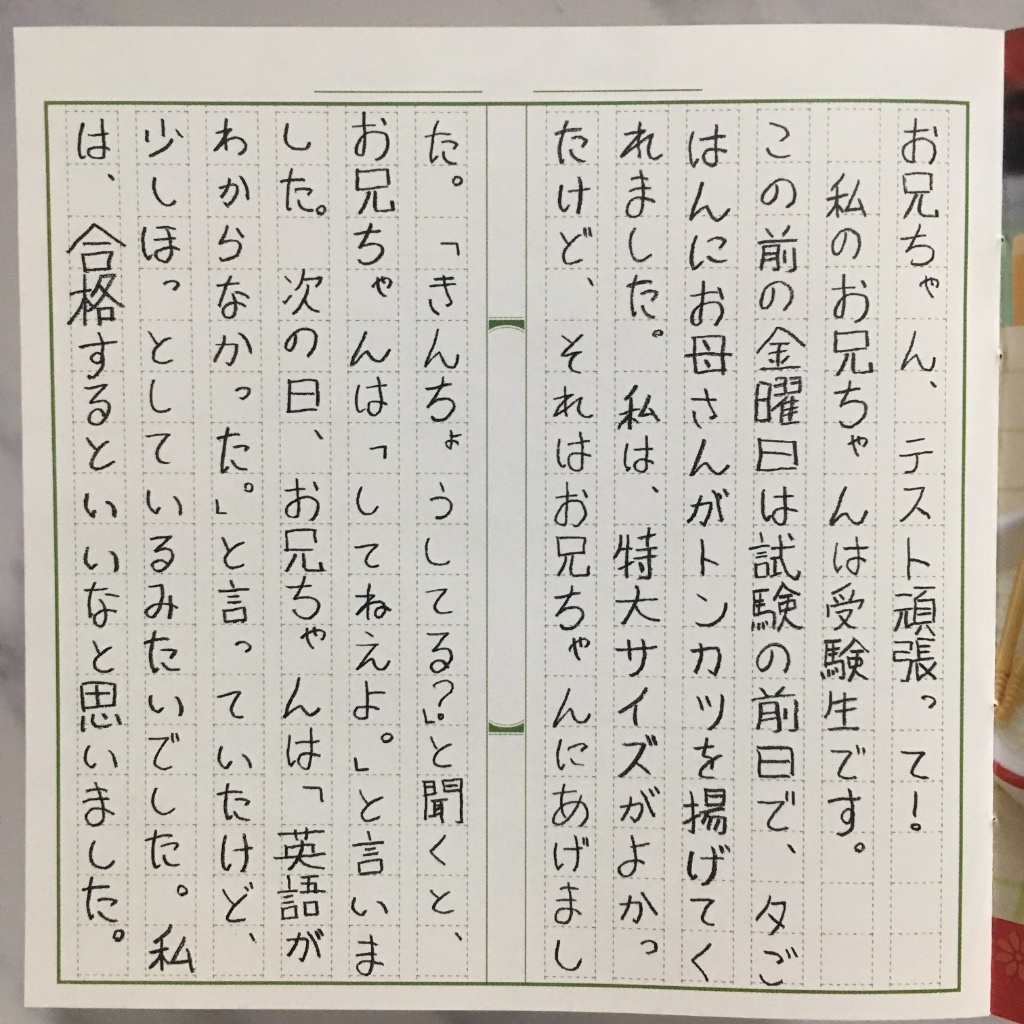 お兄ちゃん、テスト頑張って！
私のお兄ちゃんは受験生です。
この前の金曜日は試験の前日で、夕ご
はんにお母さんがトンカツを揚げてく
れました。私は、特大サイズがよかっ
たけど、それはお兄ちゃんにあげまし
た。「きんちょうしてる？」と聞くと、
お兄ちゃんは「してねえよ。」と言いま
した。次の日、お兄ちゃんは「英語が
わからなかった。」と言っていたけど、
少しほっとしているみたいでした。私
は、合格するといいなと思いました。